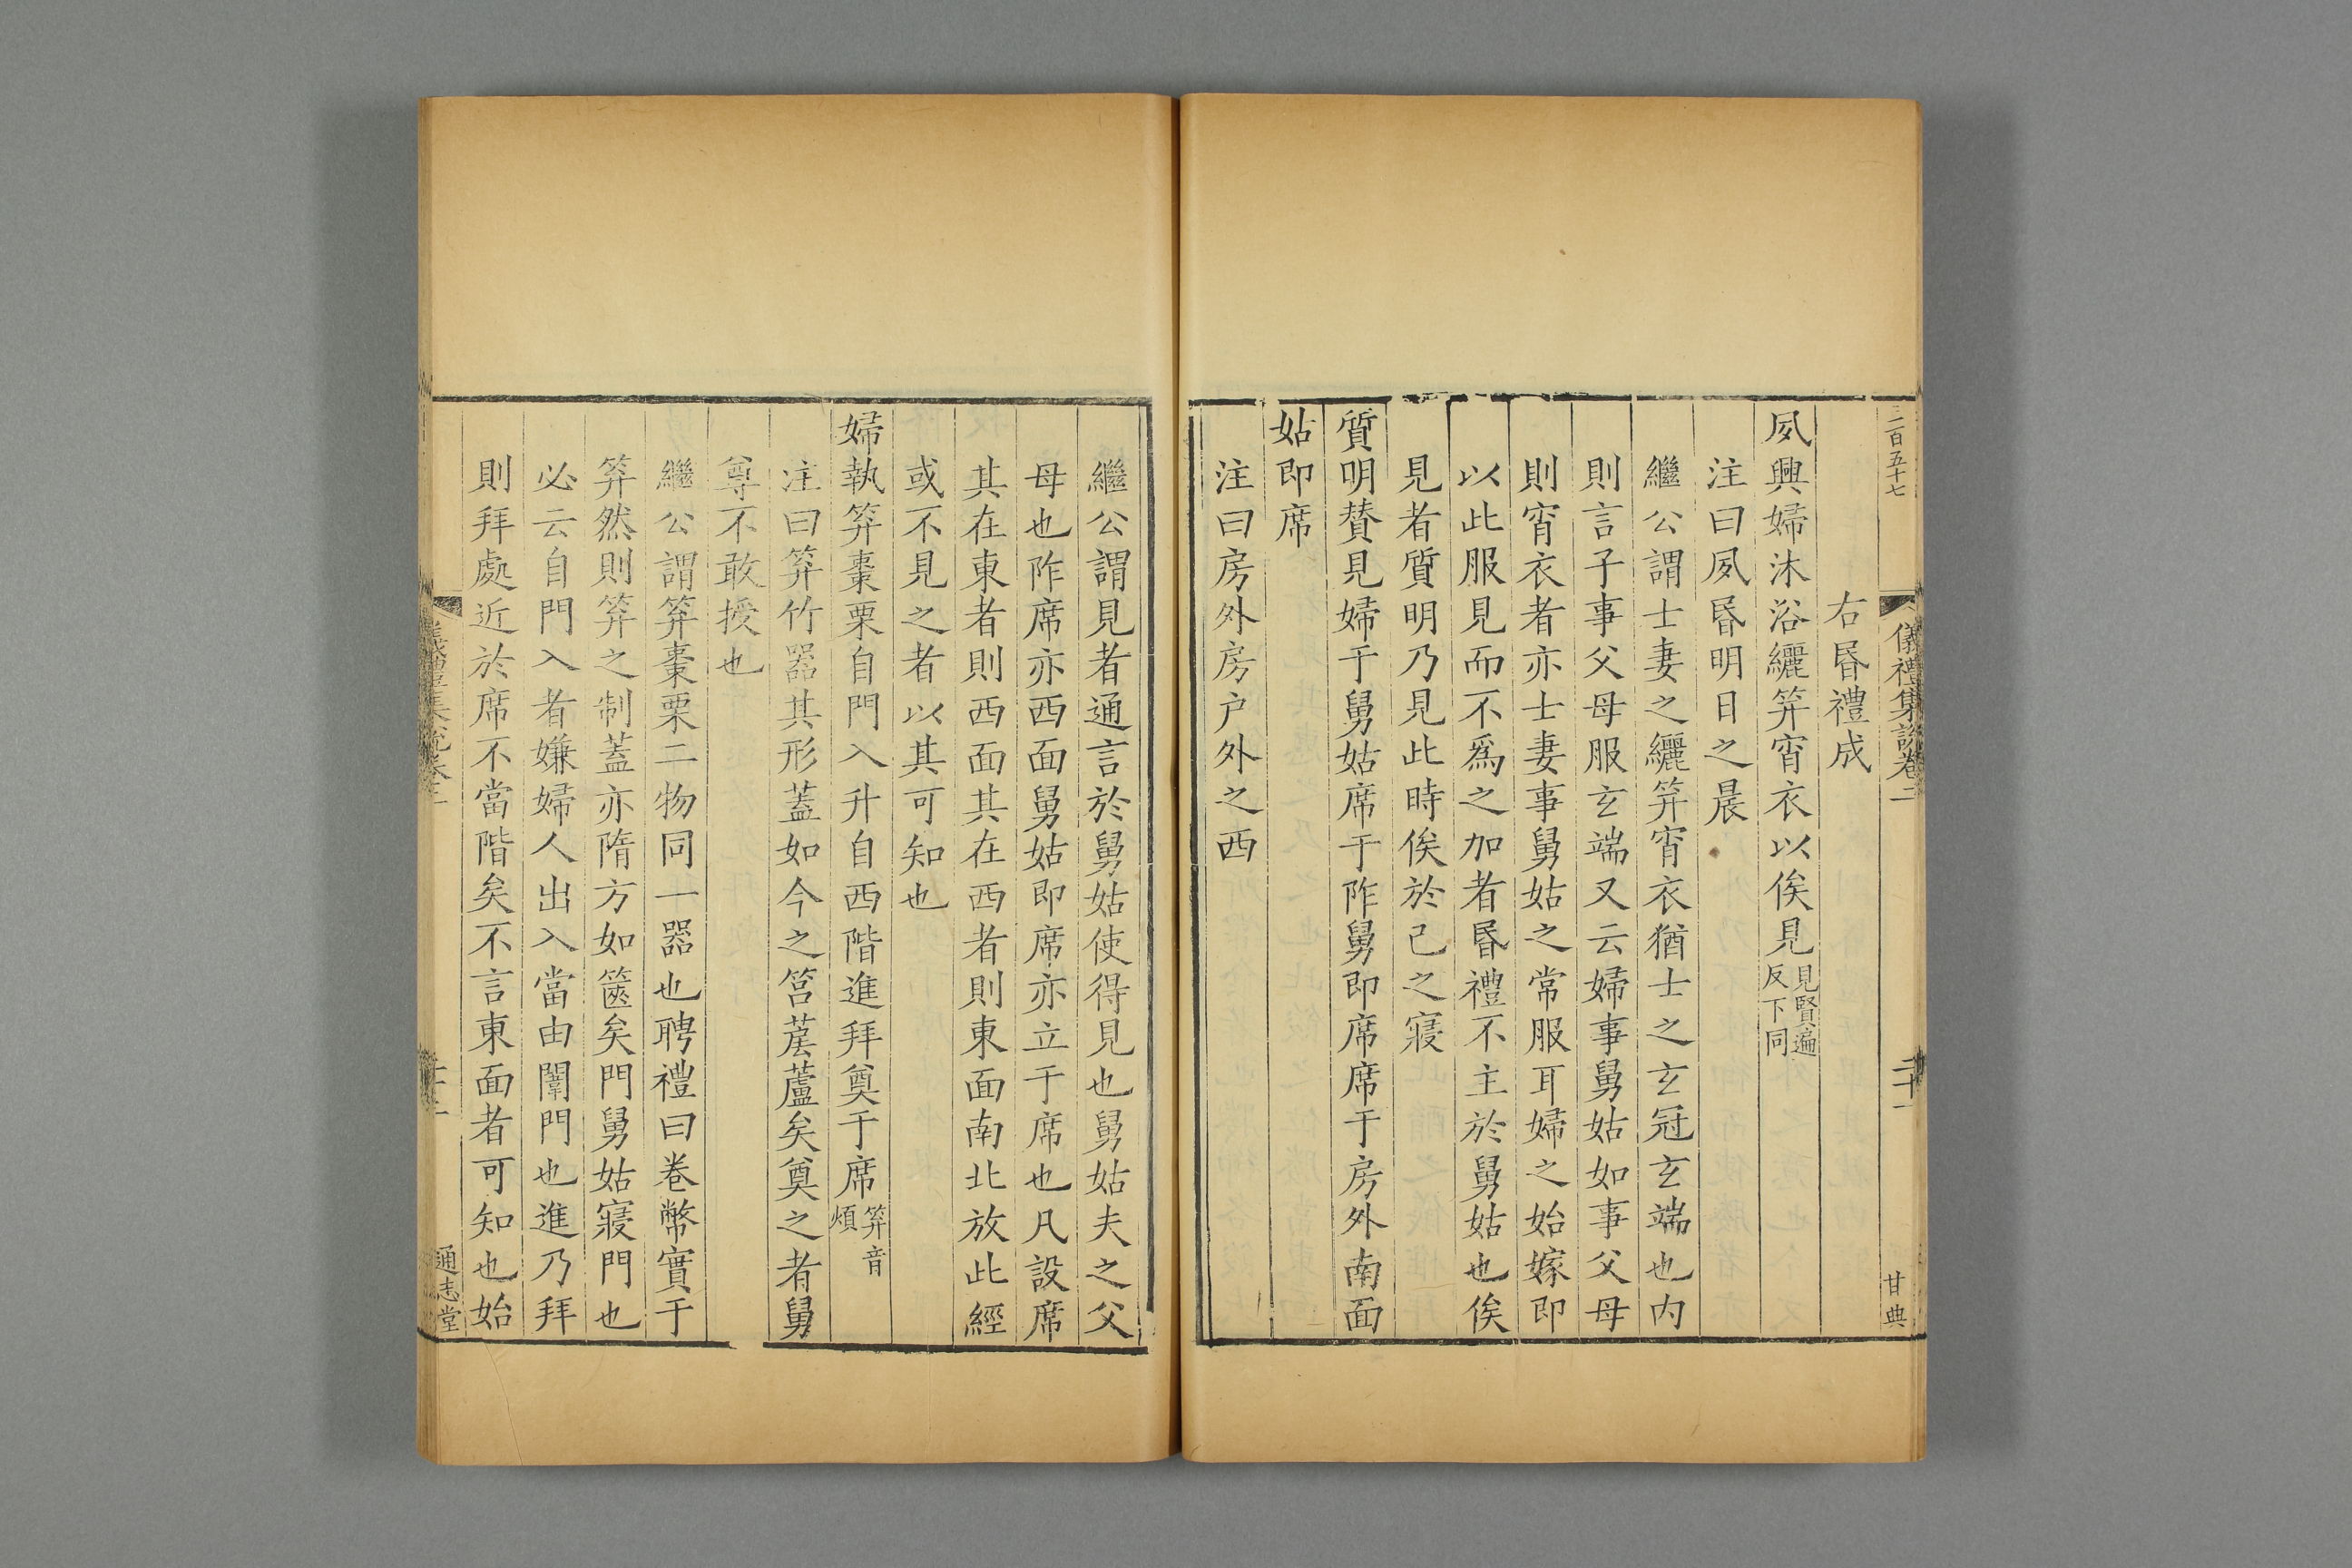 三百五十七
儀禮集說卷二
二十一
甘典
右昏禮成
夙興婦沐浴纚笄宵衣以俟見見賢遍反下同
注曰夙昏明日之晨
繼公謂士妻之纚笄宵衣猶士之玄冠玄端也内
則言子事父母服玄端又云婦事舅姑如事父母
則宵衣者亦士妻事舅姑之常服耳婦之始嫁即
以此服見而不爲之加者昏禮不主於舅姑也俟
見者質明乃見此時俟於己之寢
質明賛見婦于舅姑席于阼舅即席席于房外南面
姑即席
注曰房外房户外之西
繼公謂見者通言於舅姑使得見也舅姑夫之父
母也阼席亦西面舅姑即席亦立于席也凡設席
其在東者則西面其在西者則東面南北放此經
或不見之者以其可知也
婦執笲棗栗自門入升自西階進拜奠于席笲音煩
注曰笲竹器其形蓋如今之筥䇲蘆矣奠之者舅
尊不敢授也
繼公謂笲棗栗二物同一器也聘禮曰卷幣實于
笲然則笲之制蓋亦隋方如篋矣門舅姑寢門也
必云自門入者嫌婦人出入當由闈門也進乃拜
則拜處近於席不當階矣不言東面者可知也始
通志堂